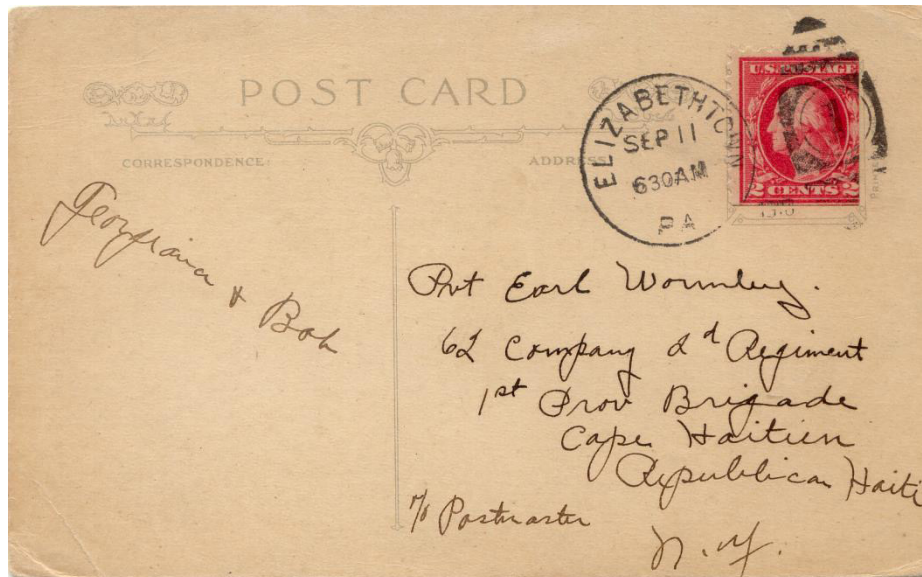 POST CARD
CORRESPONDENCE
ADDRESS
ELIZABETHTOWN
SEP 11
630AM
PA
U.S. POSTAGE
2 CENTS 2
Georgiana & Bob
Pvt Earl Wormley.
62 Company 2d Regiment
1st Prov Brigade
Cape Haitien
Republican Haiti
c/o Postmaster
N.Y.